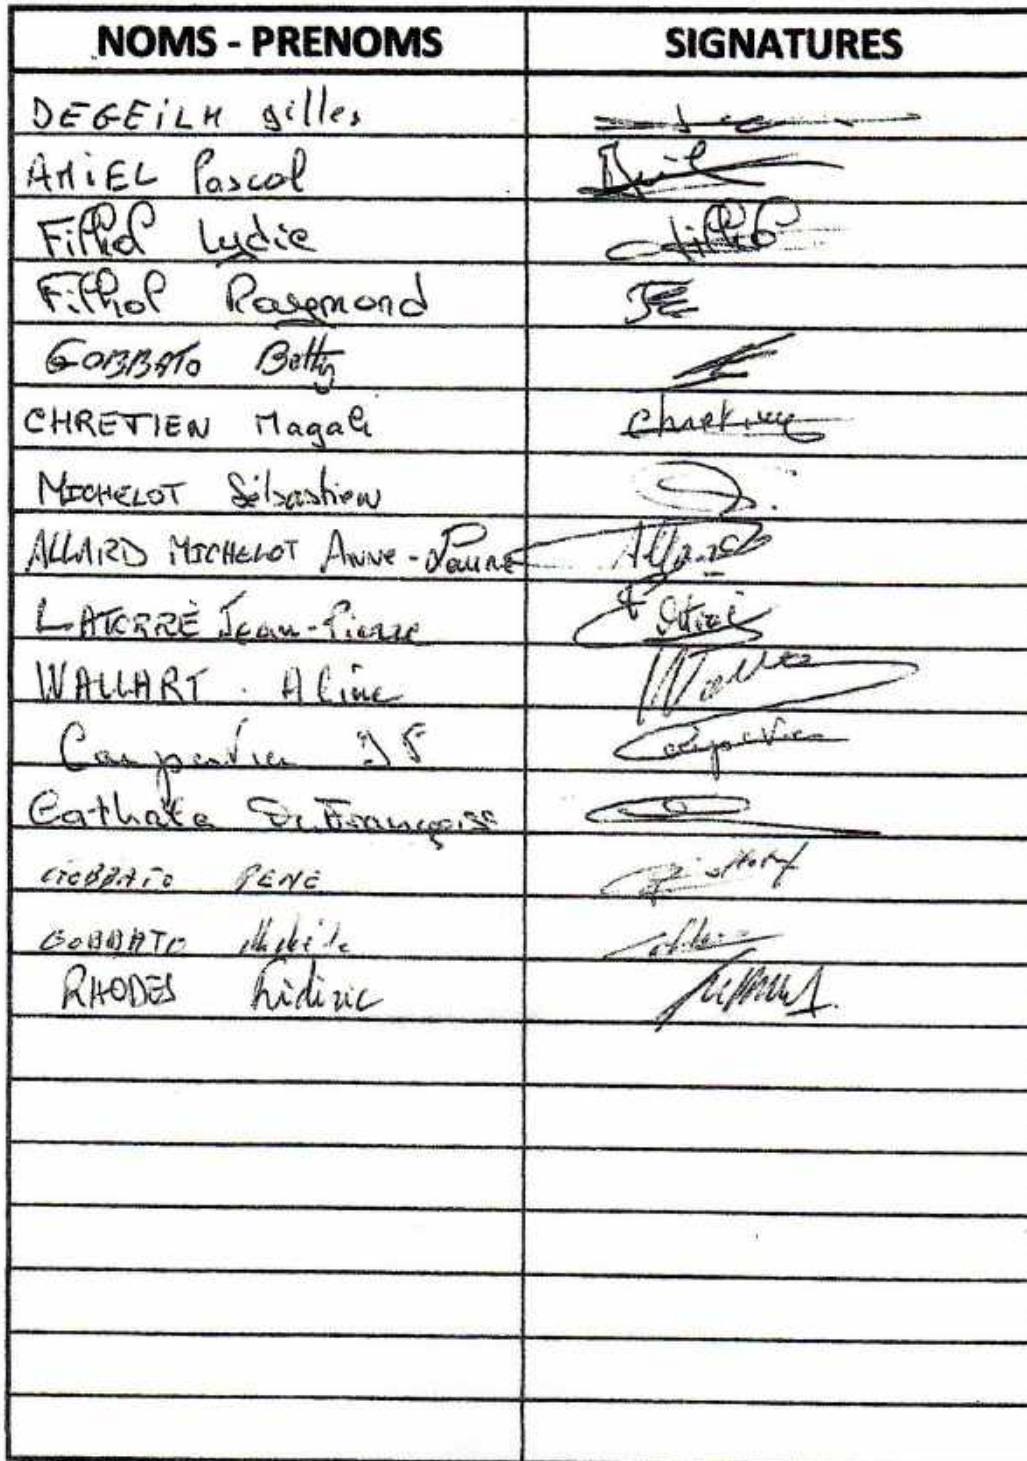 NOMS - PRENOMS SIGNATURES
DEGEILH Gilles
AMIEL Pascal
Filhol Lydie Filhol
Filhol Raymond
GOBBATO Betty
CHRETIEN Magali Chretien
MICHELOT Sébastien
ALLARD MICHELOT ANNE-Laure Allard
LATORRE Jean-Pierre
WALLART Aline
Carpentier JF
Cathala Françoise
GOBBATO RENE
GOBBATO
RHODES Frédéric